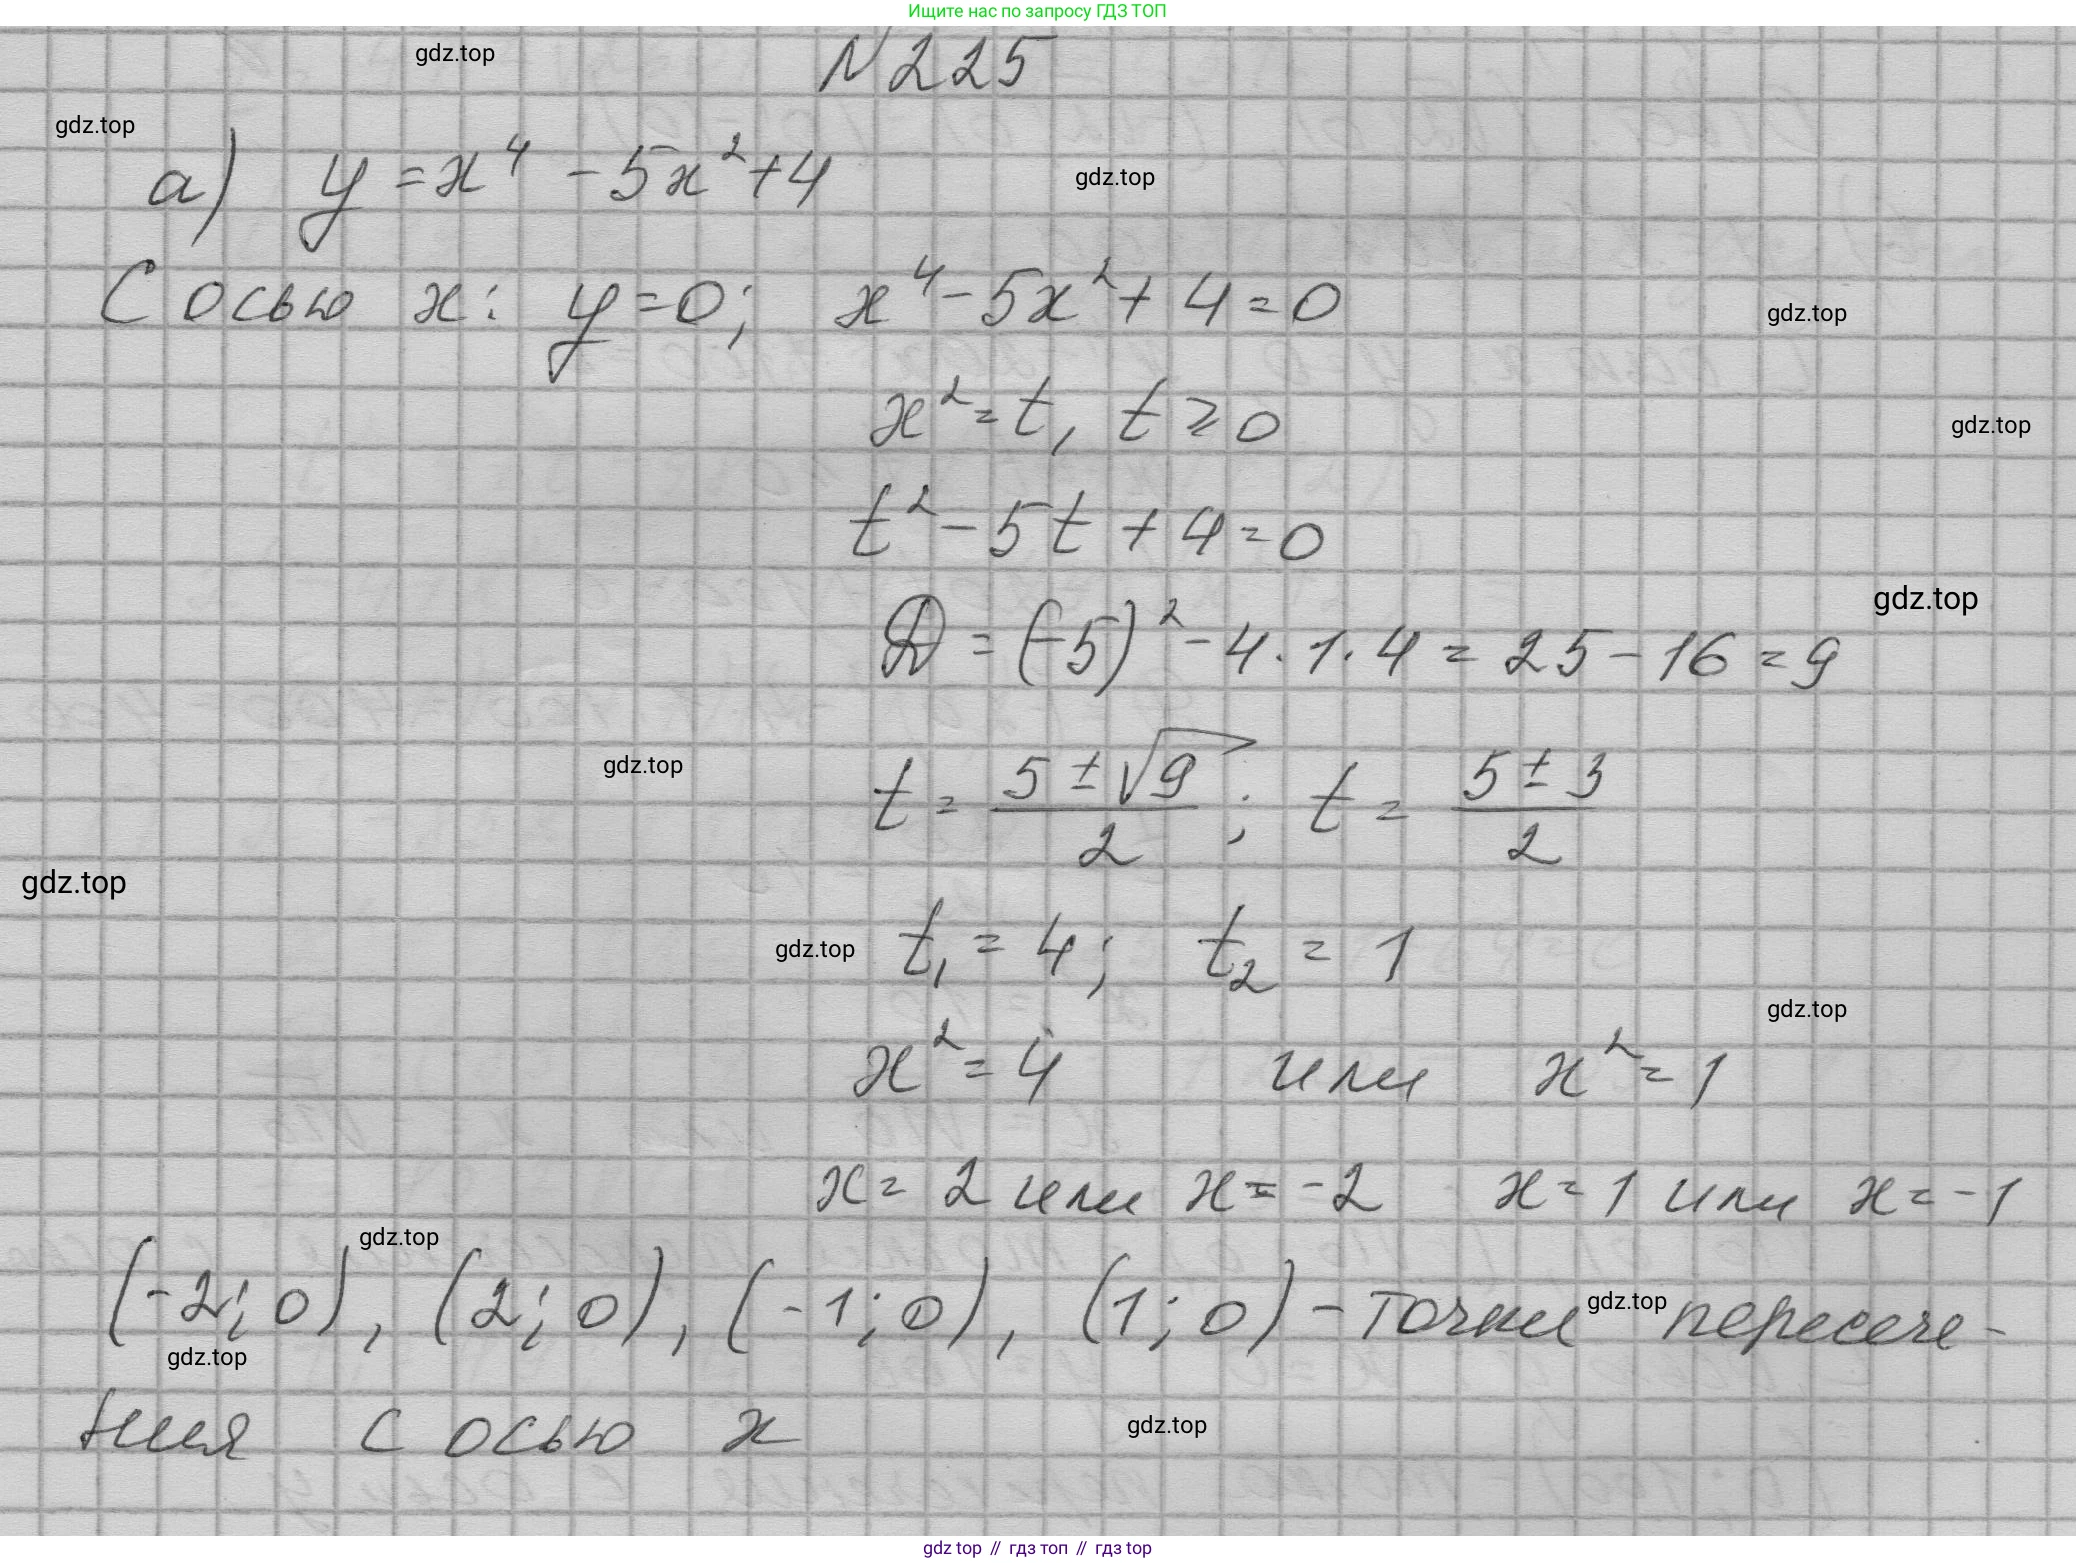 Ищите нас по запросу ГДЗ ТОП
gdz.top
N 225
gdz.top
а) y = x⁴ - 5x² + 4
gdz.top
С осью x: y = 0; x⁴ - 5x² + 4 = 0
gdz.top
x² = t, t ⩾ 0
gdz.top
t² - 5t + 4 = 0
gdz.top
D = (-5)² - 4 · 1 · 4 = 25 - 16 = 9
gdz.top
t = (5 ± √9)/2; t = (5 ± 3)/2
gdz.top
gdz.top
t₁ = 4; t₂ = 1
gdz.top
x² = 4 или x² = 1
x = 2 или x = -2 x = 1 или x = -1
gdz.top
(-2; 0), (2; 0), (-1; 0), (1; 0) - точки пересече-
gdz.top
gdz.top
ния с осью x
gdz.top
gdz top // гдз топ // гдз top